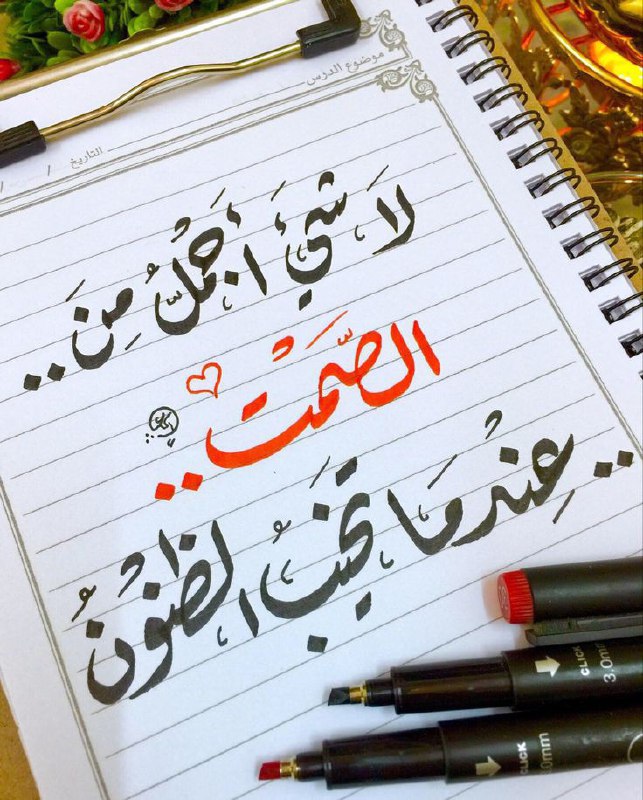 موضوع الدرس
التاريخ / /
لَا شَيْءَ أَجْمَلُ مِنَ ..
الصَّمْت ..
.. عِنْدمَا تَخيبُ الظنُونُ
CLICK 3.0mm
CLICK .0mm